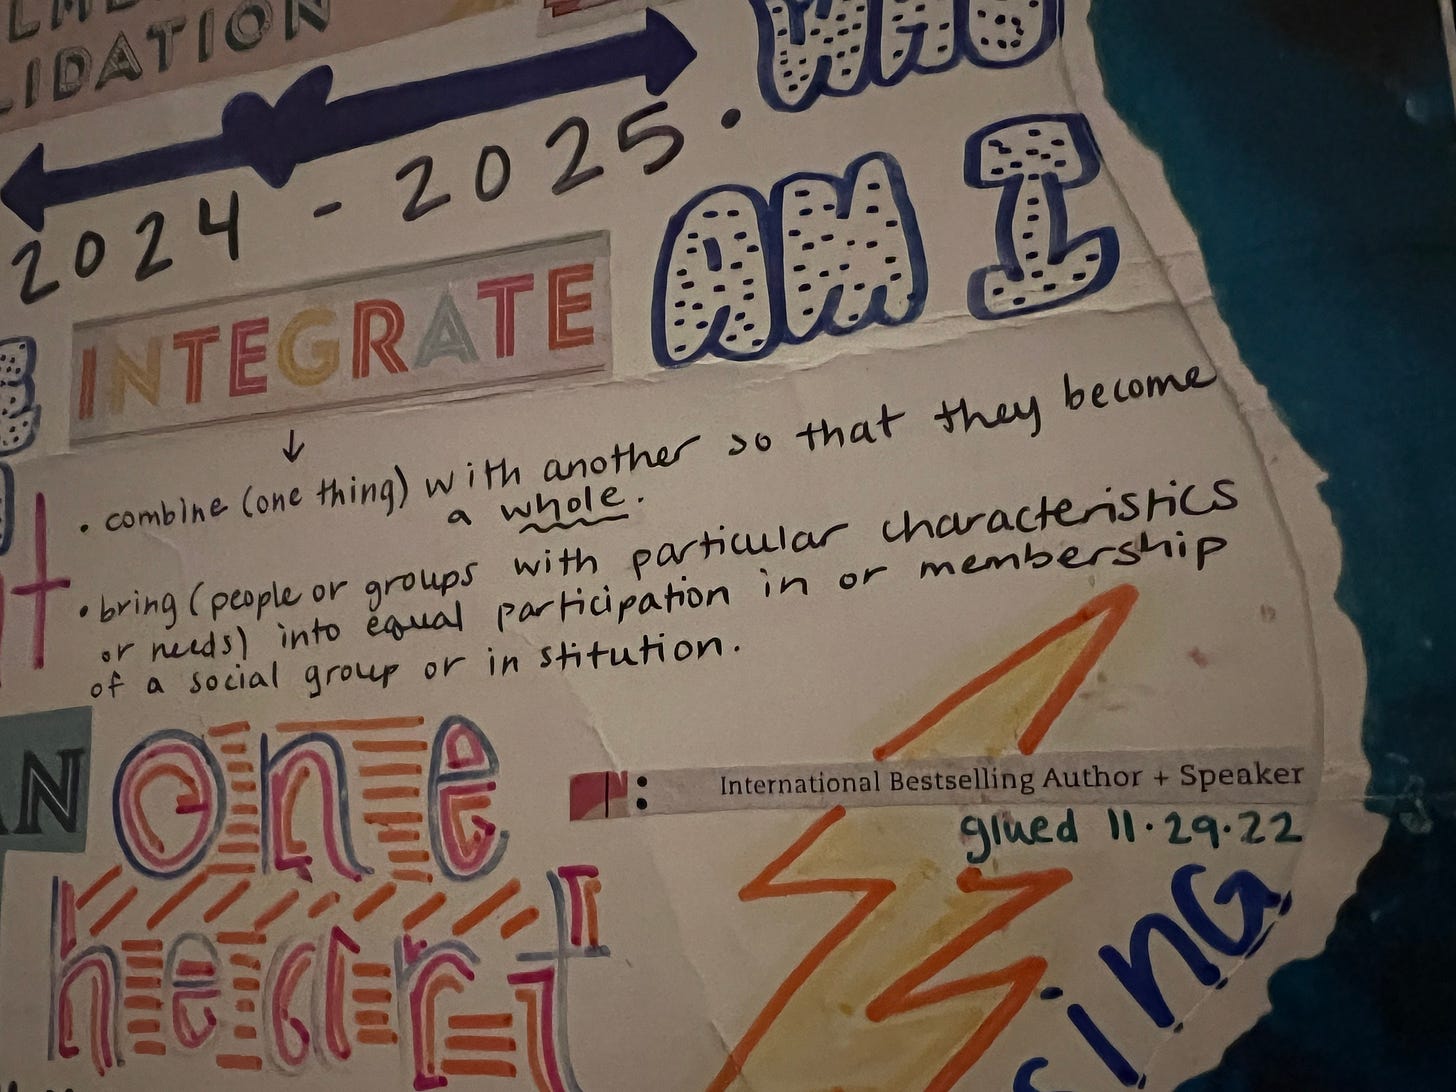 LIDATION
WHO
2024 - 2025.
AM I
INTEGRATE
↓
• combine (one thing) with another so that they become
a whole.
• bring (people or groups with particular characteristics
or needs) into equal participation in or membership
of a social group or in stitution.
one
heart
: International Bestselling Author + Speaker
glued 11.29.22
SING